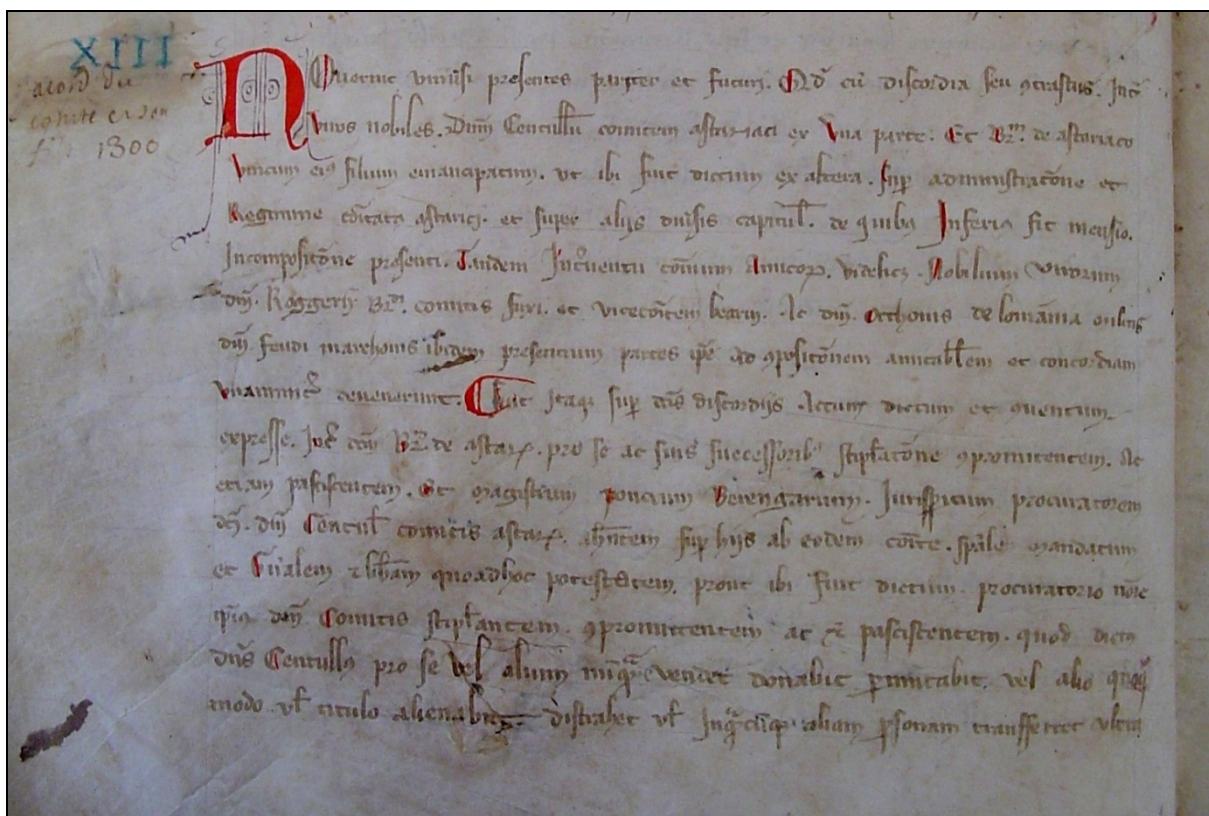 XIII
acord du
comte et son
fil 1300
Noverint univsi presentes pariter et futuri. Qd cu discordia seu contrastus. Int
viros nobiles. Dnm Centullu comitem astariaci ex una parte. Et Br. de astariaco
unicum ei filium emancipatum. ut ibi fuit dictum ex altera. sup administratoe et
Regimine comitatu astariaci. et super alijs divisis capitul. de quib Inferiu fit mensio.
Incompositoe presenti. Tandem Intventu comum Amicor. videlicz. Nobilium virorum
dni. Roggerij Br. comitis fuxi. et vicecomitem bearn. Ac dni. Otthonis de lomania militis
dni feudi marchonis ibidem presentium partes ipe ad compositionem amicabilem et concordiam
unanimit devenerunt. Fuit itaq sup dcis discordijs Actum dictum et conventum.
expresse. Int dcm Br. de astar. pro se ac suis successorib stiplatoe compromittentem. Ac
etiam pascissentem. Et magistrum poncium Berengarium. Jurisptum procuratorem
dci. dni Centul comitis astar. ahntem sup hijs ab eodem coite. spale mandatum
et Gnalem et libam quoadhoc potestatem. prout ibi fuit dictum. procuratorio noie
ipius dni Comitis stiplantem. compromittentem ac et pascissentem. quod dictu
dns Centullus pro se vel alium nuqua vendet donabit pmutabit. vel alio quoq
modo vl titulo alienabit distrahet vl Inquacuq aliam psonam transfferret ultra